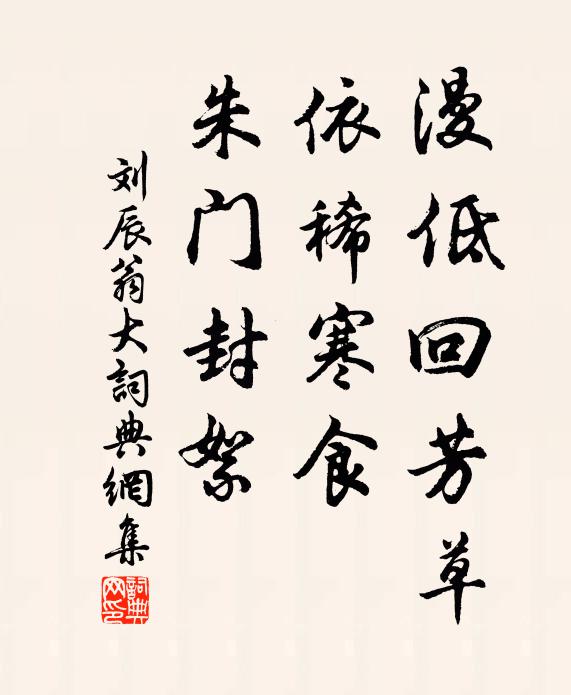 漫低回芳草
依稀寒食
朱门封絮
刘辰翁大詞典網集
詞典网印